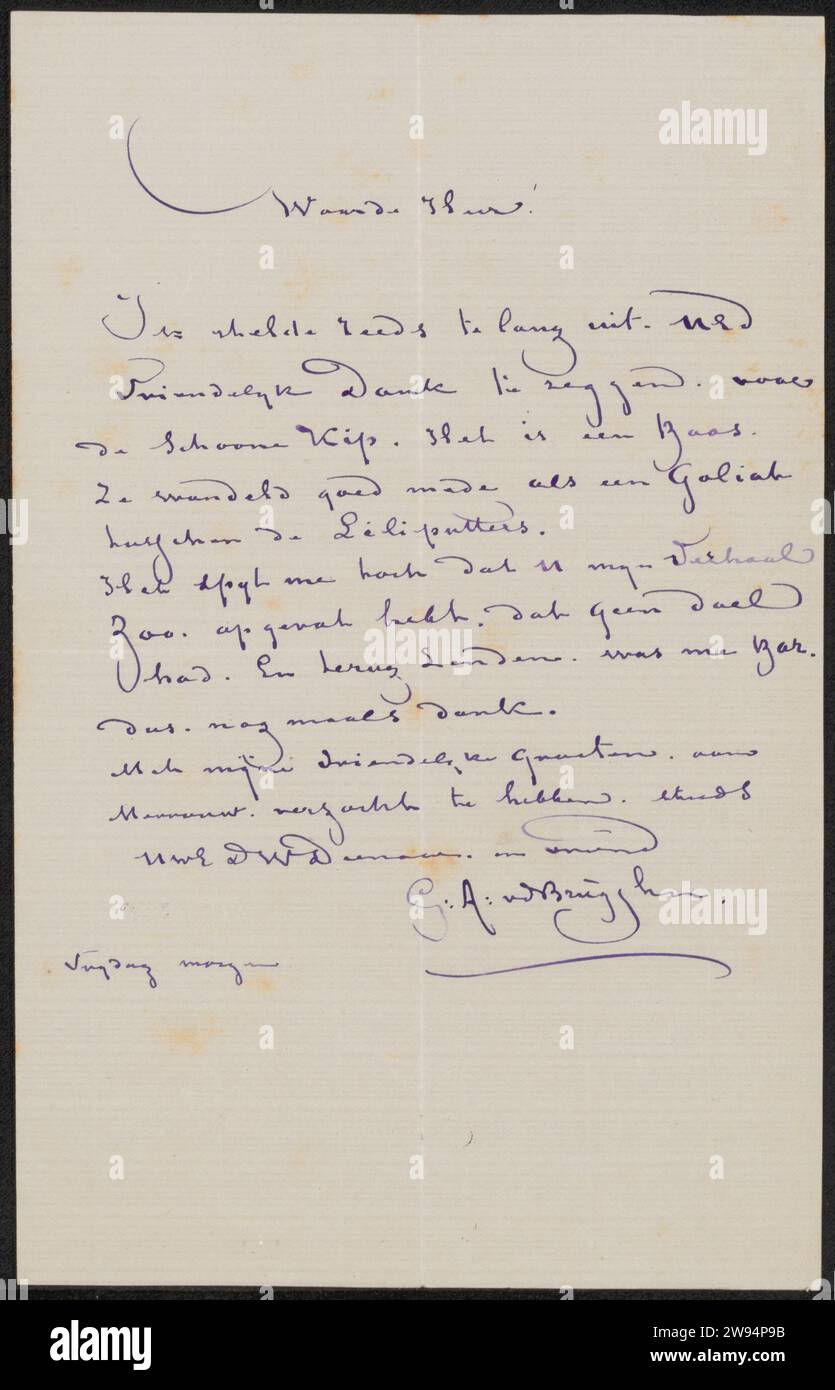 Waarde Heer!
Ik stelde reeds te lang uit. UEd
Vriendelyk Dank te zeggen. voor
de Schoone Kip. Het is een Baas.
Ze wandeld goed mede als een Goliat
tusschen de Lilliputters.
Het spyt me toch dat U myn Verhaal
Zoo. opgevat hebt. dat geen doel
had. En terug zenden. was me
dus. nog maals dank.
Met mijne Vriendelyke Groeten. aan
Mevrouw. verzocht te hebben. steeds
UwE DWDienaar. en vriend
G: A: vdBrugghen.
Vrydag morgen
alamy
Image ID: 2W94P9B
www.alamy.com